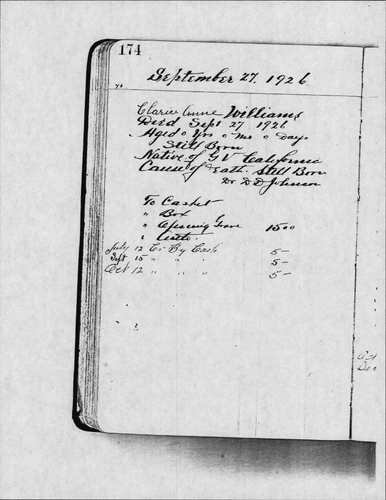 174
September 27, 1926
Clarice Anne Williams
Died Sept 27 1926
Aged 0 Yrs 0 Mo 0 Days
Still Born
Native of G V California
Cause of Death. Still Born
Dr D D Johnson
To Casket
" Box
" Opening Grave 15 00
"
July 12 Cr By Cash 5 -
Sept 15 " " " 5 -
Oct 12 " " " 5 -